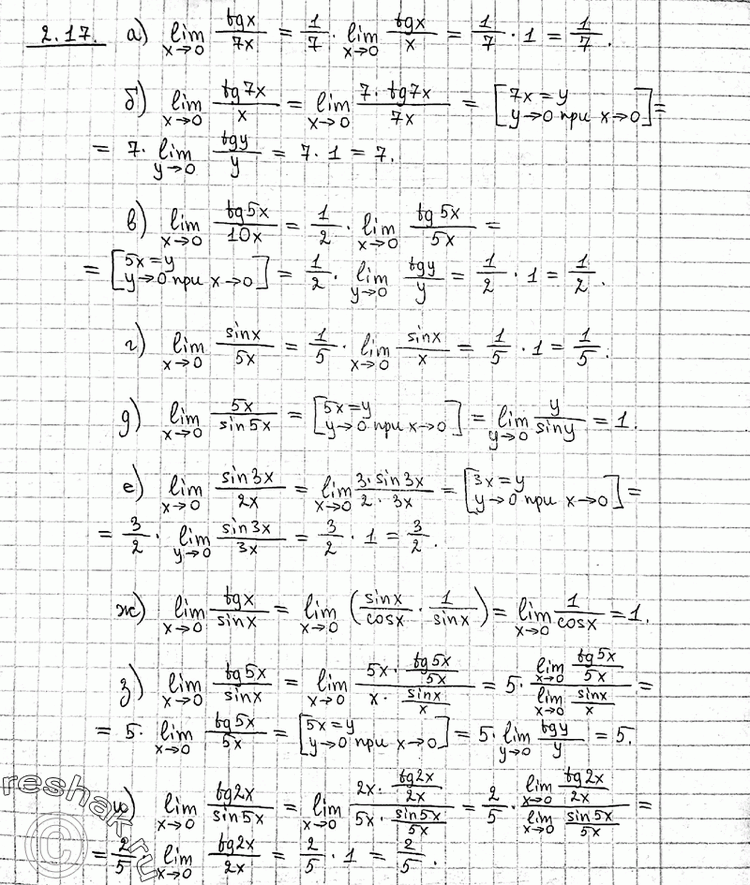 2.17. а) lim x→0 tgx/7x = 1/7 · lim x→0 tgx/x = 1/7 · 1 = 1/7.
б) lim x→0 tg7x/x = lim x→0 7·tg7x/7x = [7x=y y→0 при x→0] =
= 7· lim y→0 tgy/y = 7·1 = 7.
в) lim x→0 tg5x/10x = 1/2 · lim x→0 tg5x/5x =
= [5x=y y→0 при x→0] = 1/2 · lim y→0 tgy/y = 1/2 · 1 = 1/2.
г) lim x→0 sinx/5x = 1/5 · lim x→0 sinx/x = 1/5 · 1 = 1/5.
д) lim x→0 5x/sin5x = [5x=y y→0 при x→0] = lim y→0 y/siny = 1.
е) lim x→0 sin3x/2x = lim x→0 3·sin3x/2·3x = [3x=y y→0 при x→0] =
= 3/2 · lim y→0 sin3x/3x = 3/2 · 1 = 3/2.
ж) lim x→0 tgx/sinx = lim x→0 (sinx/cosx · 1/sinx) = lim x→0 1/cosx = 1.
з) lim x→0 tg5x/sinx = lim x→0 (5x · tg5x/5x)/(x · sinx/x) = 5 · (lim x→0 tg5x/5x)/(lim x→0 sinx/x) =
= 5 · lim x→0 tg5x/5x = [5x=y y→0 при x→0] = 5 · lim y→0 tgy/y = 5.
и) lim x→0 tg2x/sin5x = lim x→0 (2x · tg2x/2x)/(5x · sin5x/5x) = 2/5 · (lim x→0 tg2x/2x)/(lim x→0 sin5x/5x) =
= 2/5 · lim x→0 tg2x/2x = 2/5 · 1 = 2/5.
reshak.ru
©